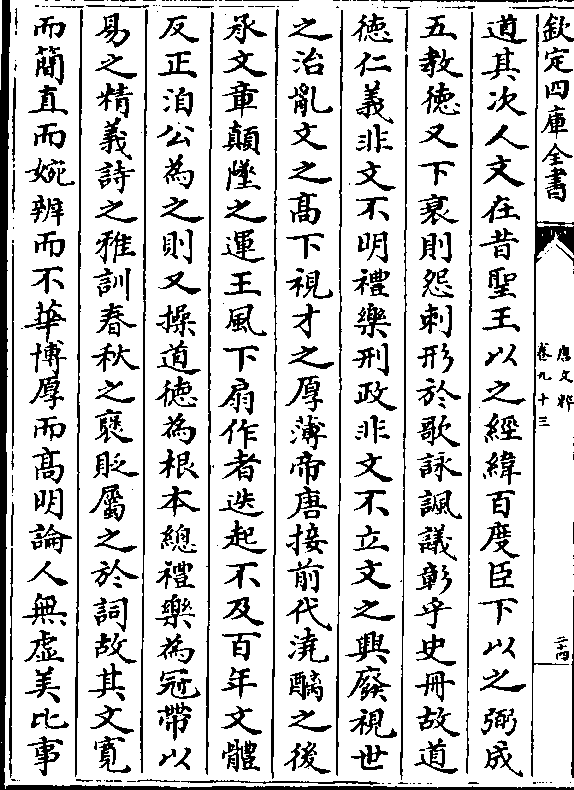 欽定四庫全書
唐文粹
卷九十三
二十四
道其次人文在昔聖王以之經緯百度臣下以之弼成
五教德又下衰則怨刺形於歌詠諷議彰乎史冊故道
德仁義非文不明禮樂刑政非文不立文之興廢視世
之治亂文之髙下視才之厚薄帝唐接前代澆醨之後
承文章顛墜之運王風下扇作者迭起不及百年文體
反正洎公為之則又操道德為根本總禮樂為冠帶以
易之精義詩之雅訓春秋之褒貶屬之於詞故其文寛
而簡直而婉辨而不華博厚而髙明論人無虛美比事